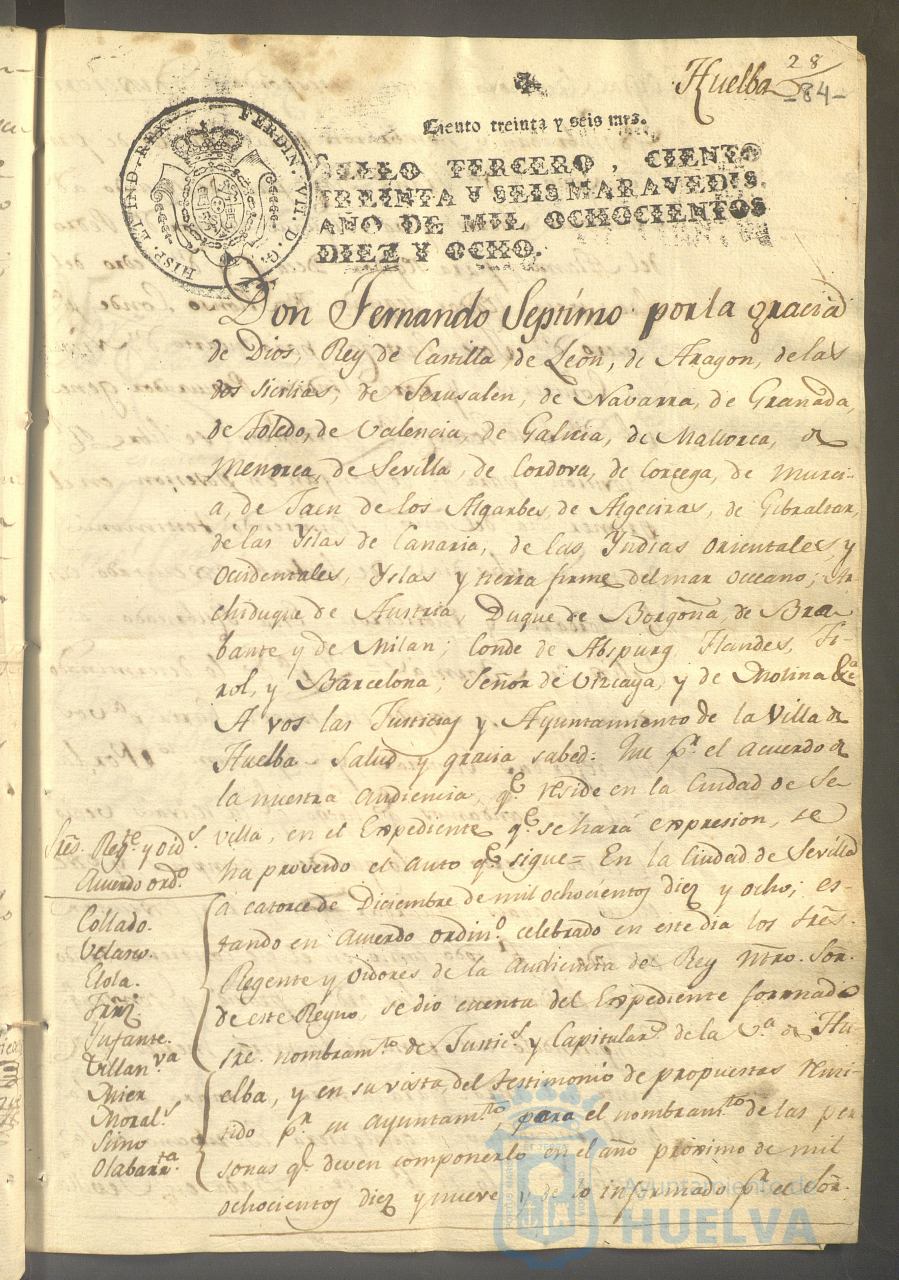 Huelba
28
-84-
Ciento treinta y seis mrs.
SELLO TERCERO, CIENTO
TREINTA Y SEIS MARAVEDIS.
AÑO DE MIL OCHOCIENTOS
DIEZ Y OCHO.
FERDIN. VII. D. G. HISP. ET IND. REX
Don Fernando Septimo por la gracia
de Dios, Rey de Castilla, de Leon, de Aragon, de las
dos Sicilias, de Jerusalen, de Navarra, de Granada,
de Toledo, de Valencia, de Galicia, de Mallorca, de
Menorca, de Sevilla, de Cordova, de Corcega, de Murci-
a, de Jaen de los Algarbes, de Algeciras, de Gibraltar,
de las Yslas de Canaria, de las Yndias orientales y
Ocidentales, Yslas y tierra firme del mar occeano; Ar-
chiduque de Austria, Duque de Borgoña, de Bra-
bante y de Milan; Conde de Abspurg, Flandes, Ti-
rol, y Barcelona, Señor de Vizcaya, y de Molina &a
A vos las Justicias y Ayuntamiento de la Villa de
Huelba Salud y gracia sabed: Que pr. el acuerdo de
la nuestra Audiencia, qe. reside en la Ciudad de Se-
villa, en el Expediente qe. se hará expresion, se
ha proveido el auto qe. sigue = En la Ciudad de Sevilla
a catorce de Diciembre de mil ochocientos diez y ocho; es-
tando en Acuerdo ordino. celebrado en este dia los Sres.
Regente y Oidores de la Audiencia del Rey Ntro. Sor.
de este Reyno, se dio cuenta del Expediente formado
sre. nombramto. de Justics. y Capitulars. de la Va. de Hu-
elba, y en su vista, del testimonio de propuestas remi-
tido pr. su Ayuntamto., para el nombramto. de las per
sonas qe. deven componerlo en el año proximo de mil
ochocientos diez y nueve y de lo informado pr. el Sor.
Sres. Regte. y Oids.
Acuerdo ordo.
Collado.
Velasco.
Elola.
Frnz
Ynfante.
Villanva
Mier
Morals.
Simo
Olabarrta.
Ayuntamiento de
HUELVA